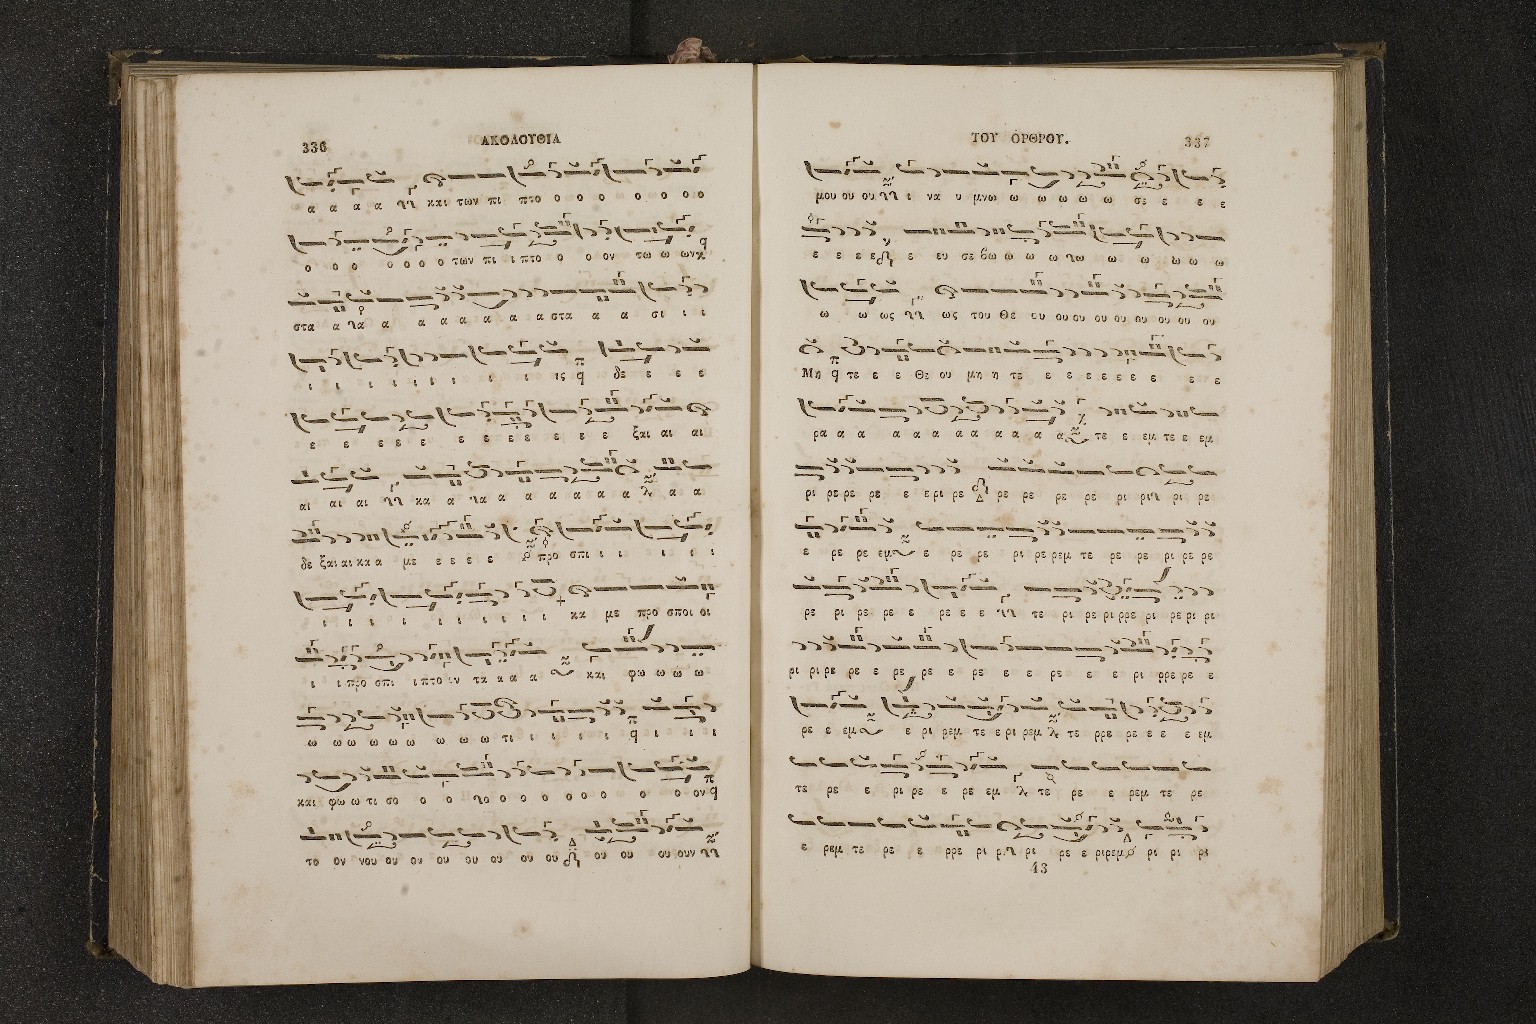 336 ΑΚΟΛΟΥΘΙΑ
α α α α και των πι πτο ο ο ο ο ο ο ο
ο ο ο ο ο ο ο των πι ι πτο ο ο ον τω ω ων
στα α α α α α α α α α στα α α σι ι ι
ι ι ι ι ι ι ι ι ι ις δε ε ε ε
ε ε ε ε ε ε ε ε ε ε ε ε ξαι αι αι
αι αι αι κα α α α α α α α α α α
δε ξαι αι κα α με ε ε ε ε προ σπι ι ι ι ι ι
ι ι ι ι ι ι ι ι ι ι κα με προ σποι οι
ι ι προ σπι ι πτο ιν τα α α α και φω ω ω ω
ω ω ω ω ω ω ω ω ω τι ι ι ι ι ι ι ι
και φω ω τι σο ο ο ο ο ο ο ο ο ο ο ον
το ον νου ου ου ου ου ου ου ου ου ου ου ουν
ΤΟΥ ΟΡΘΡΟΥ. 337
μου ου ου ι να υ μνω ω ω ω ω ω σε ε ε ε
ε ε ε ε ε ευ σε βω ω ω ω ω ω ω ω ω
ω ω ως ως του Θε ου ου ου ου ου ου ου ου ου
Μη τε ε ε Θε ου μη η τε ε ε ε ε ε ε ε ε ε
ρα α α α α α α α α α α α τε ε εμ τε ε εμ
ρι ρε ρε ρε ε ε ρι ρε ρε ρε ρε ρε ρι ρι ρι ρε
ε ρε ρε εμ ε ρε ρε ρι ρε ρεμ τε ρε ρε ρι ρε ρε
ρε ρι ρε ρε ε ρε ε ε τε ρι ρε ρι ρρε ρι ρε ρι ρε
ρι ρι ρε ρε ε ρε ρε ε ρε ε ε ρε ε ε ρι ρρε ρε ε
ρε ε εμ ε ρι ρεμ τε ε ρι ρεμ τε ρρε ρε ε ε ε εμ
τε ρε ε ρι ρε ε ρε εμ τε ρε ε ρεμ τε ρε
ε ρεμ τε ρε ε ρρε ρι ρι ρι ρε ε ριρεμ ρι ρι ρι
43